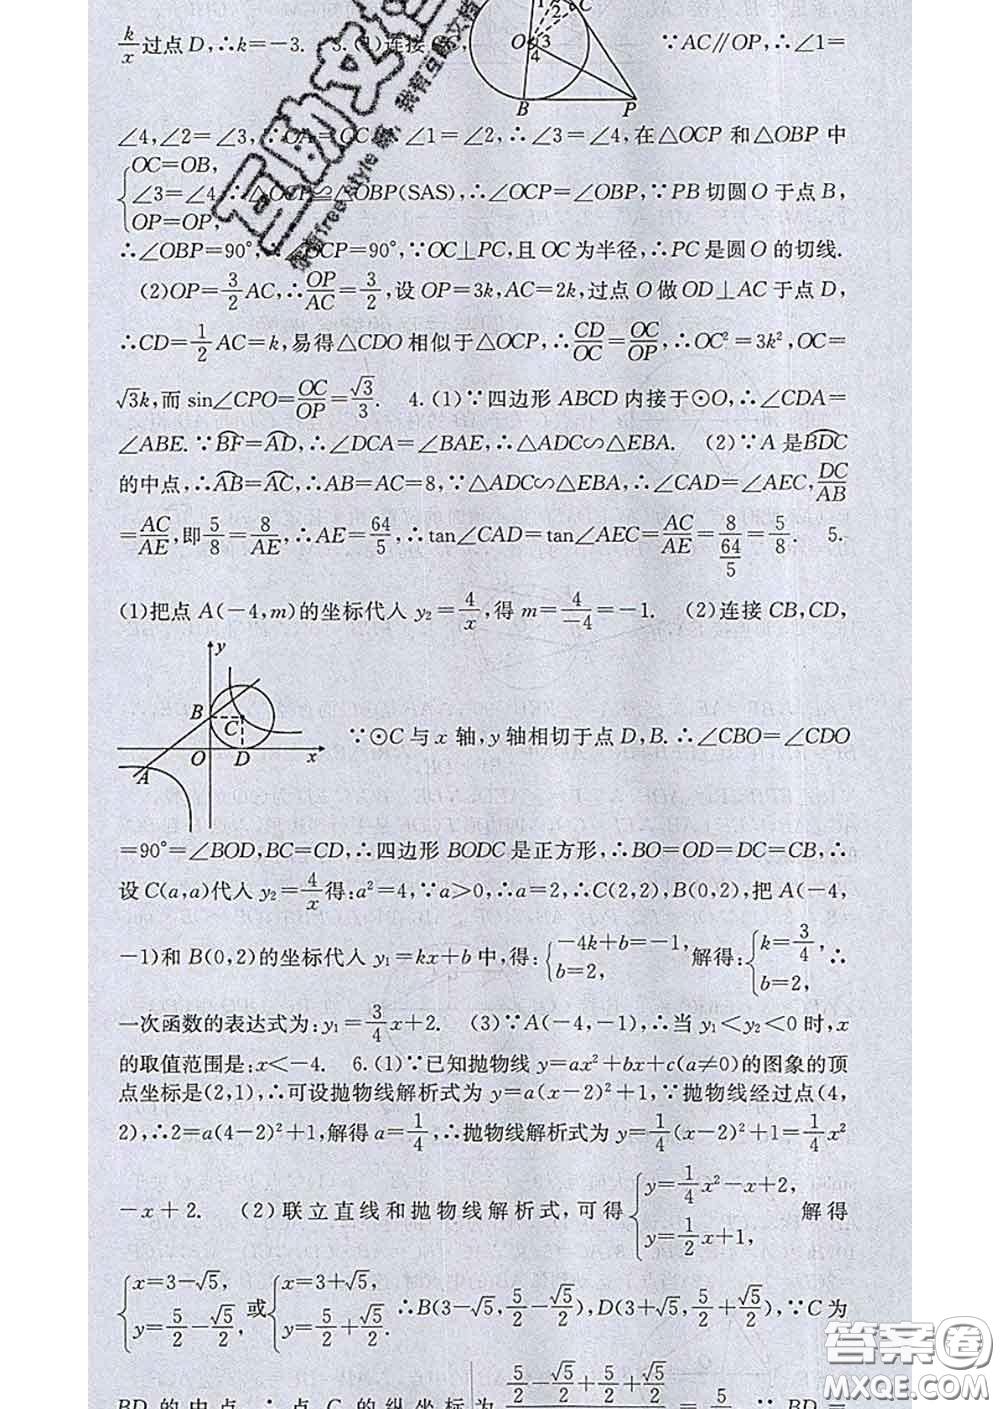 k/x 过点D,∴k=-3. 3.(1)连接 ∵AC∥OP,∴∠1=
1 2 C O 3 4 B P
∠4,∠2=∠3,∵OA=OC ∠1=∠2,∴∠3=∠4,在△OCP 和△OBP 中
{OC=OB, ∠3=∠4 OP=OP, ∴△OCP≌△OBP(SAS),∴∠OCP=∠OBP,∵PB切圆O于点B,
∴∠OBP=90°, ∠OCP=90°,∵OC⊥PC,且OC为半径,∴PC是圆O的切线.
(2)OP=3/2 AC,∴OP/AC=3/2,设OP=3k,AC=2k,过点O做OD⊥AC于点D,
∴CD=1/2 AC=k,易得△CDO相似于△OCP,∴CD/OC=OC/OP,∴OC²=3k²,OC=
√3k,而sin∠CPO=OC/OP=√3/3. 4.(1)∵四边形ABCD内接于⊙O,∴∠CDA=
∠ABE.∵B͡F=A͡D,∴∠DCA=∠BAE,∴△ADC∽△EBA. (2)∵A是B͡DC
的中点,∴A͡B=A͡C,∴AB=AC=8,∵△ADC∽△EBA,∴∠CAD=∠AEC,DC/AB
=AC/AE,即5/8=8/AE,∴AE=64/5,∴tan∠CAD=tan∠AEC=AC/AE=8/(64/5)=5/8. 5.
(1)把点A(-4,m)的坐标代人y₂=4/x,得m=4/-4=-1. (2)连接CB,CD,
y B C O D x A
∵⊙C与x轴,y轴相切于点D,B.∴∠CBO=∠CDO
=90°=∠BOD,BC=CD,∴四边形BODC是正方形,∴BO=OD=DC=CB,∴
设C(a,a)代人y₂=4/x得:a²=4,∵a>0,∴a=2,∴C(2,2),B(0,2),把A(-4,
-1)和B(0,2)的坐标代人y₁=kx+b中,得:{-4k+b=-1, b=2, 解得:{k=3/4, b=2, ∴
一次函数的表达式为:y₁=3/4 x+2. (3)∵A(-4,-1),∴当y₁<y₂<0时,x
的取值范围是:x<-4. 6.(1)∵已知抛物线y=ax²+bx+c(a≠0)的图象的顶
点坐标是(2,1),∴可设抛物线解析式为y=a(x-2)²+1,∵抛物线经过点(4,
2),∴2=a(4-2)²+1,解得a=1/4,∴抛物线解析式为y=1/4(x-2)²+1=1/4 x²
-x+2. (2)联立直线和抛物线解析式,可得{y=1/4 x²-x+2, y=1/2 x+1, 解得
{x=3-√5, y=5/2-√5/2, 或{x=3+√5, y=5/2+√5/2. ∴B(3-√5,5/2-√5/2),D(3+√5,5/2+√5/2),∵C为
BD的中点,∴点C的纵坐标为 5/2-√5/2+5/2+√5/2 = 5 ∵BD=
答案圈
MXQE.COM